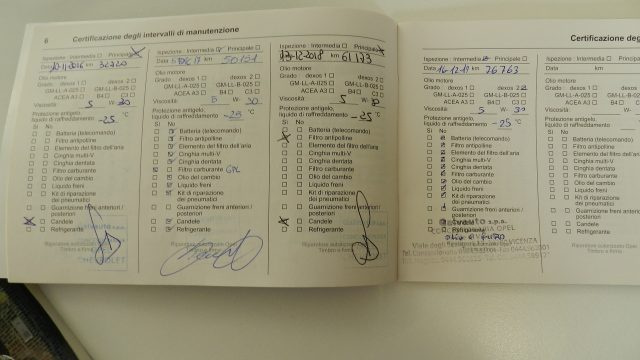 6 Certificazione degli intervalli di manutenzione
Ispezione: Intermedia Principale
Data km 32220
Olio motore
Grado: dexos 1 dexos 2
GM-LL-A-025 GM-LL-B-025
ACEA A3 B4 C3
Viscosità 5 W- 30
Protezione antigelo,
liquido di raffreddamento -25 °C
Sì No
Batteria (telecomando)
Filtro antipolline
Elemento del filtro dell'aria
Cinghia multi-V
Cinghia dentata
Filtro carburante
Olio del cambio
Liquido freni
Kit di riparazione
dei pneumatici
Guarnizione freni anteriori /
posteriori
Candele
Refrigerante
Riparatore autorizzato Opel
Timbro e firma
CHEVROLET
Ispezione: Intermedia Principale
Data km 50151
Olio motore
Grado: dexos 1 dexos 2
GM-LL-A-025 GM-LL-B-025
ACEA A3 B4 C3
Viscosità 5 W- 30
Protezione antigelo,
liquido di raffreddamento -25 °C
Sì No
Batteria (telecomando)
Filtro antipolline
Elemento del filtro dell'aria
Cinghia multi-V
Cinghia dentata
Filtro carburante GPL
Olio del cambio
Liquido freni
Kit di riparazione
dei pneumatici
Guarnizione freni anteriori /
posteriori
Candele
Refrigerante
Riparatore autorizzato Opel
Timbro e firma
Ispezione: Intermedia Principale
Data 13-12-2018 km 61133
Olio motore
Grado: dexos 1 dexos 2
GM-LL-A-025 GM-LL-B-025
ACEA A3 B4 C3
Viscosità 5 W-
Protezione antigelo,
liquido di raffreddamento -25 °C
Sì No
Batteria (telecomando)
Filtro antipolline
Elemento del filtro dell'aria
Cinghia multi-V
Cinghia dentata
Filtro carburante
Olio del cambio
Liquido freni
Kit di riparazione
dei pneumatici
Guarnizione freni anteriori /
posteriori
Candele
Refrigerante
Riparatore autorizzato Opel
Timbro e firma
Certificazione deg
Ispezione: Intermedia Principale
Data 16-12-17 km 76763
Olio motore
Grado: dexos 1 dexos 2
GM-LL-A-025 GM-LL-B-025
ACEA A3 B4 C3
Viscosità 5 W- 30
Protezione antigelo,
liquido di raffreddamento -25 °C
Sì No
Batteria (telecomando)
Filtro antipolline
Elemento del filtro dell'aria
Cinghia multi-V
Cinghia dentata
Filtro carburante
Olio del cambio
Liquido freni
Kit di riparazione
dei pneumatici
Guarnizione freni anteriori /
posteriori
Candele
OPEL
Refrigerante
VICENZA
Ispezione: Intermedia
Data km
Olio motore
Grado: dexos 1
GM-LL-A-025
ACEA A3
Viscosità
Protezione antigelo,
liquido di raffreddamento
Sì No
Batteria (telecomando)
Filtro antipolline
Elemento del filtro
Cinghia multi-V
Cinghia dentata
Filtro carburante
Olio del cambio
Liquido freni
Kit di riparazione
dei pneumatici
Guarnizione freni
posteriori
Candele
Refrigerante
Riparatore autorizzato
Timbro e firma